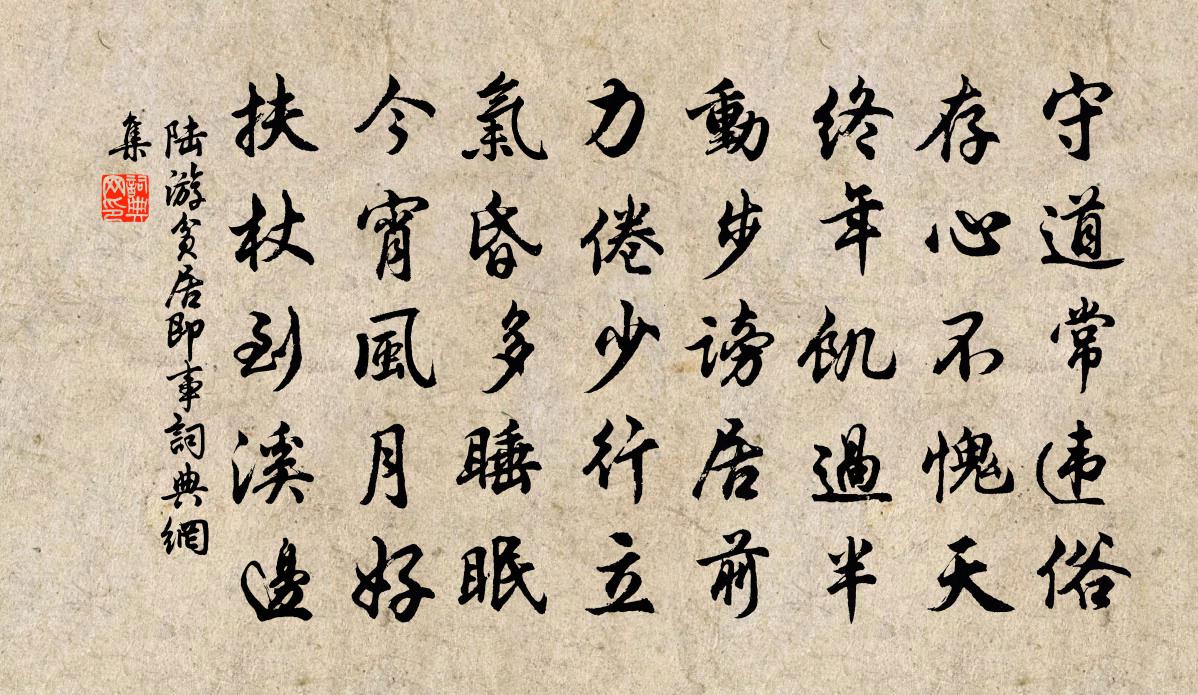 守道常违俗
存心不愧天
終年飢過半
動步謗居前
力倦少行立
氣昏多睡眠
今宵風月好
扶杖到溪邊
陆游贫居即事詞典網
集
詞典
网印